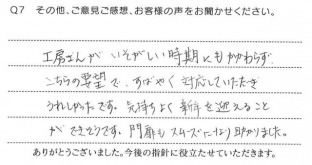 Q7 その他、ご意見ご感想、お客様の声をお聞かせください。
工房さんがいそがしい時期にもかかわらず
こちらの要望で、すばやく対応していただき
うれしかったです。気持ちよく新年を迎えること
ができそうです。門扉もスムーズになり助かりました。
ありがとうございました。今後の指針に役立たせていただきます。